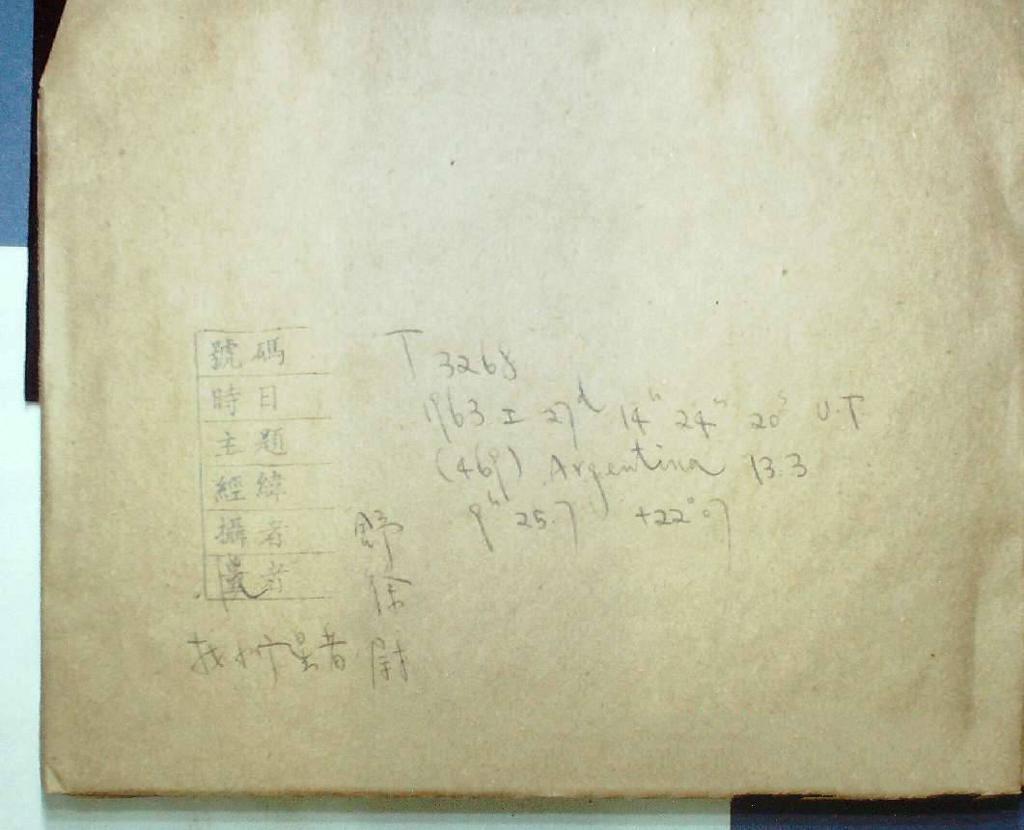 號碼 T 3268
時日 1963 I 27ᵈ 14ʰ 24ᵐ 20ˢ U.T
主題 (469) Argentina 13.3
經緯 9ʰ 25.7 +22°.7
攝者 舒
量者 徐
找小行星者 尉